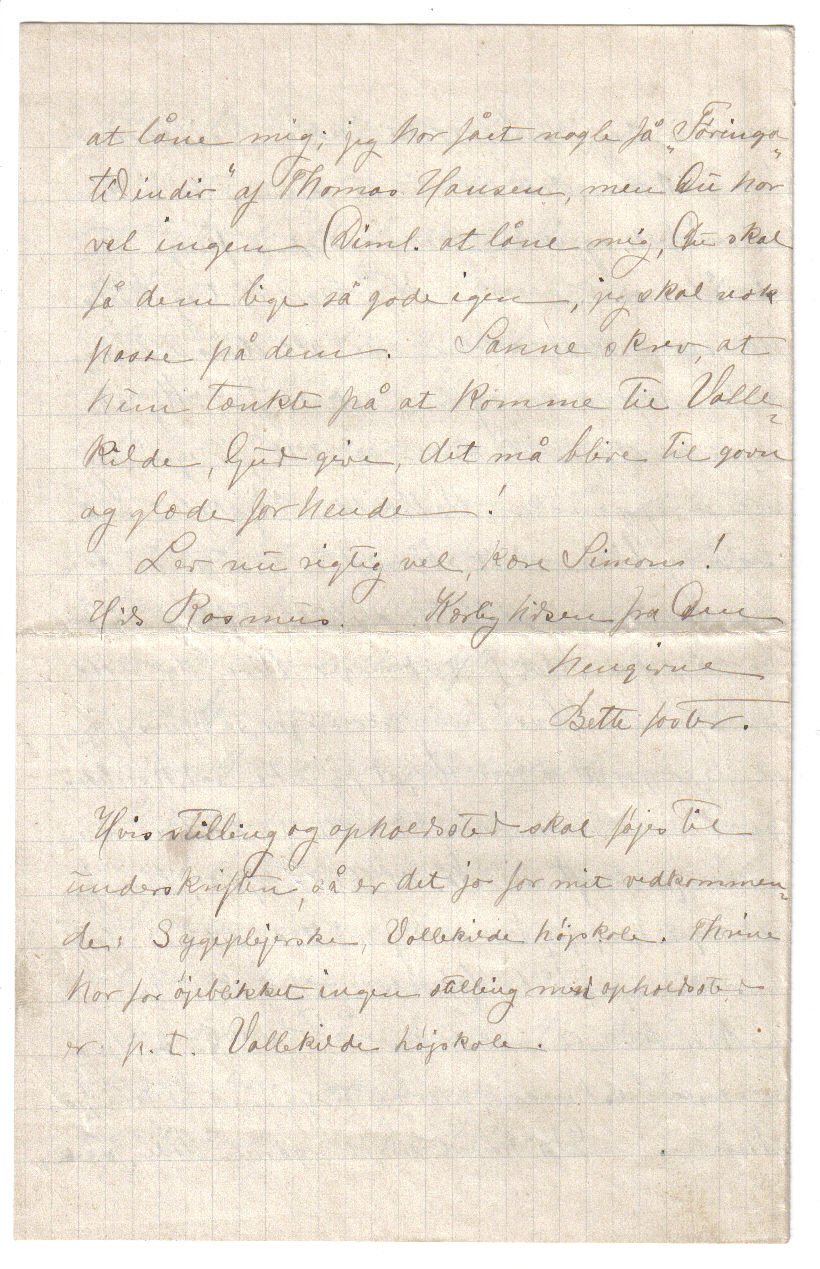 at låne mig; jeg har fået nogle få „Föringa-
tidindir“ af Thomas Hansen, men Du har
vel ingen Diml. at låne mig, Du skal
få dem lige så gode igen, jeg skal nok
passe på dem. Sanne skrev, at
hun tænkte på at komme til Valle-
kilde, Gud give, det må blive til gavn
og glæde for hende!
Lev nu rigtig vel, kære Simon!
Hils Rasmus. Kærlig hilsen fra Din
hengivne
Bette søster.
Hvis stilling og opholdssted skal føjes til
underskriften, så er det jo for mit vedkommen-
de: Sygeplejerske, Vallekilde højskole. Thrine
har for øjeblikket ingen stilling men opholdssted
er p. t. Vallekilde højskole.